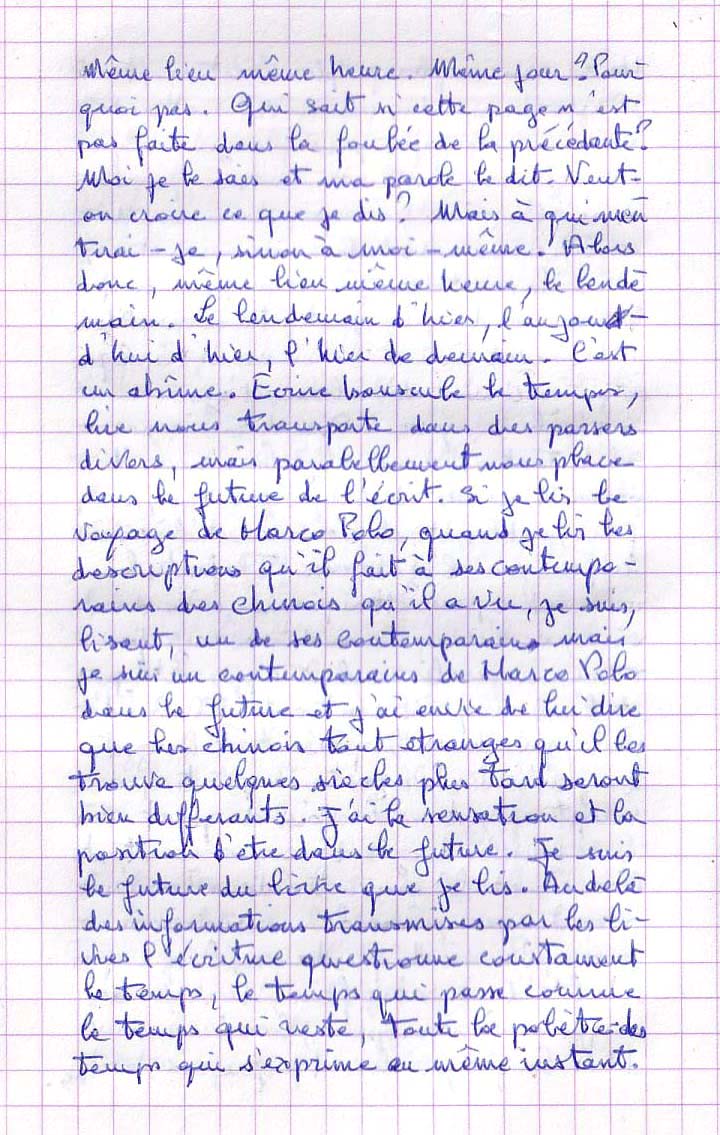 Même lieu même heure. Même jour? Pour
quoi pas. Qui sait si cette page n'est
pas faite dans la foulée de la précédante?
Moi je le sais et ma parole le dit. Veut-
on croire ce que je dis? Mais à qui men
tirai-je, sinon à moi-même. Alors
donc, même lieu même heure, le lende
main. Le lendemain d'hier, l'aujour-
d'hui d'hier, l'hier de demain. C'est
un abîme. Écrire bouscule le temps,
lire nous transporte dans des passers
divers, mais parallellement nous place
dans le future de l'écrit. Si je lis le
Voyage de Marco Polo, quand je lis les
descriptions qu'il fait à ses contempo-
rains des chinois qu'il a vu, je suis,
lisant, un de ses contemporains mais
je suis un contemporains de Marco Polo
dans le future et j'ai envie de lui dire
que les chinois tant etranges qu'il les
trouve quelques siècles plus tard seront
bien differants. J'ai la sensation et la
position d'etre dans le future. Je suis
le future du livre que je lis. Au delà
des informations transmises par les li-
vres l'écriture questionne constament
le temps, le temps qui passe comme
le temps qui reste, toute la palette des
temps qui s'exprime au même instant.